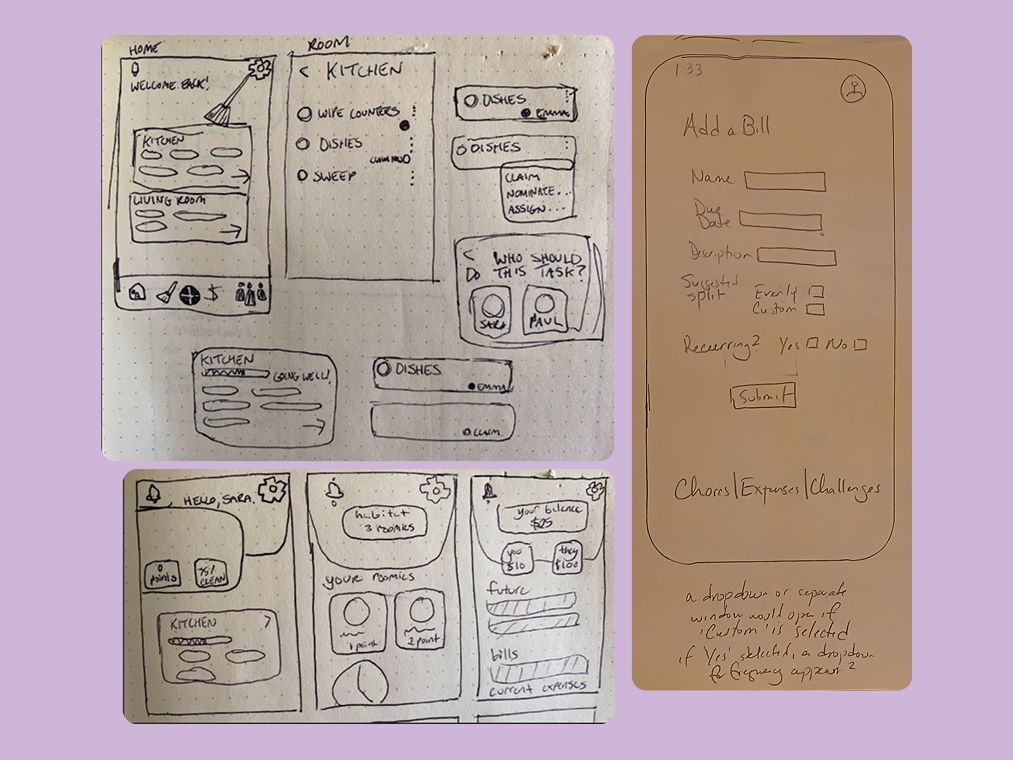 HOME
WELCOME BACK!
KITCHEN
LIVING ROOM
$
ROOM
< KITCHEN
WIPE COUNTERS
DISHES
CLAIM NOW
SWEEP
DISHES
EMMA
DISHES
CLAIM
NOMINATE...
ASSIGN...
< WHO SHOULD
DO THIS TASK?
SARA
PAUL
KITCHEN
GOING WELL!
DISHES
EMMA
CLAIM
HELLO, SARA.
0
points
75%
CLEAN
KITCHEN >
habitat
3 roomies
your roomies
1 point
2 point
your balance
$25
you
$10
they
$100
future
bills
current expenses
1:33
Add a Bill
Name
Due
Date
Description
Suggested
split
Evenly
Custom
Recurring? Yes No
Submit
Chores|Expenses|Challenges
a dropdown or separate
window would open if
'Custom' is selected
if 'Yes' selected, a dropdown
for frequency appears?